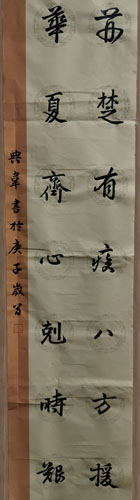 荊楚有疫八方援
華夏齊心剋時艱
書於庚子歲